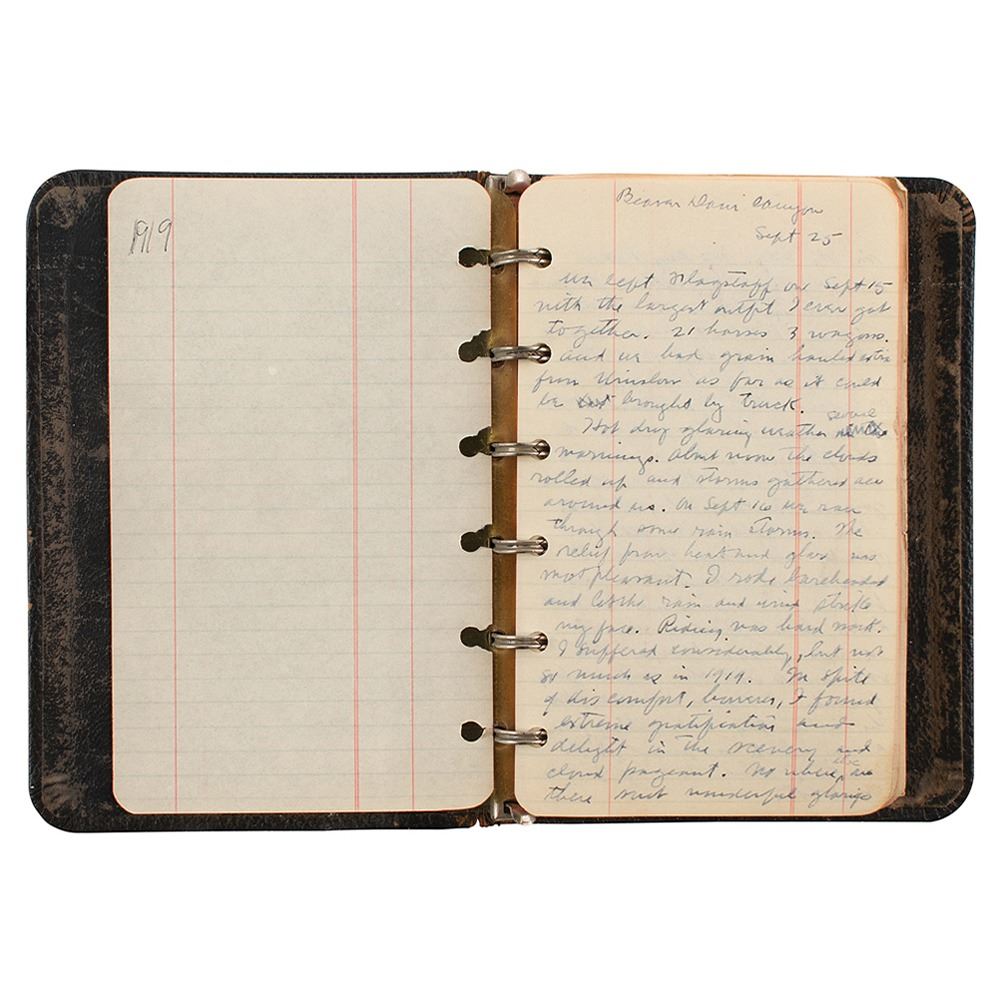 1919
Beaver Dam Canyon
Sept 25
We left Flagstaff on Sept 15
with the largest outfit I ever got
together. 21 horses 3 wagons.
and we had grain hauled extra
from Winslow as far as it could
be brought by truck.
Hot dry glaring weather
mornings. About noon the clouds
rolled up and storms gathered all
around us. On Sept 16 we ran
through some rain storms. The
relief from heat and glare was
most pleasant. I rode bareheaded
and let the rain and wind strike
my face. Riding was hard work.
I suffered considerably, but not
so much as in 1919. In spite
of discomfort, however, I found
extreme gratification and
delight in the scenery and the
cloud pageant. No where are
there such wonderful glorious